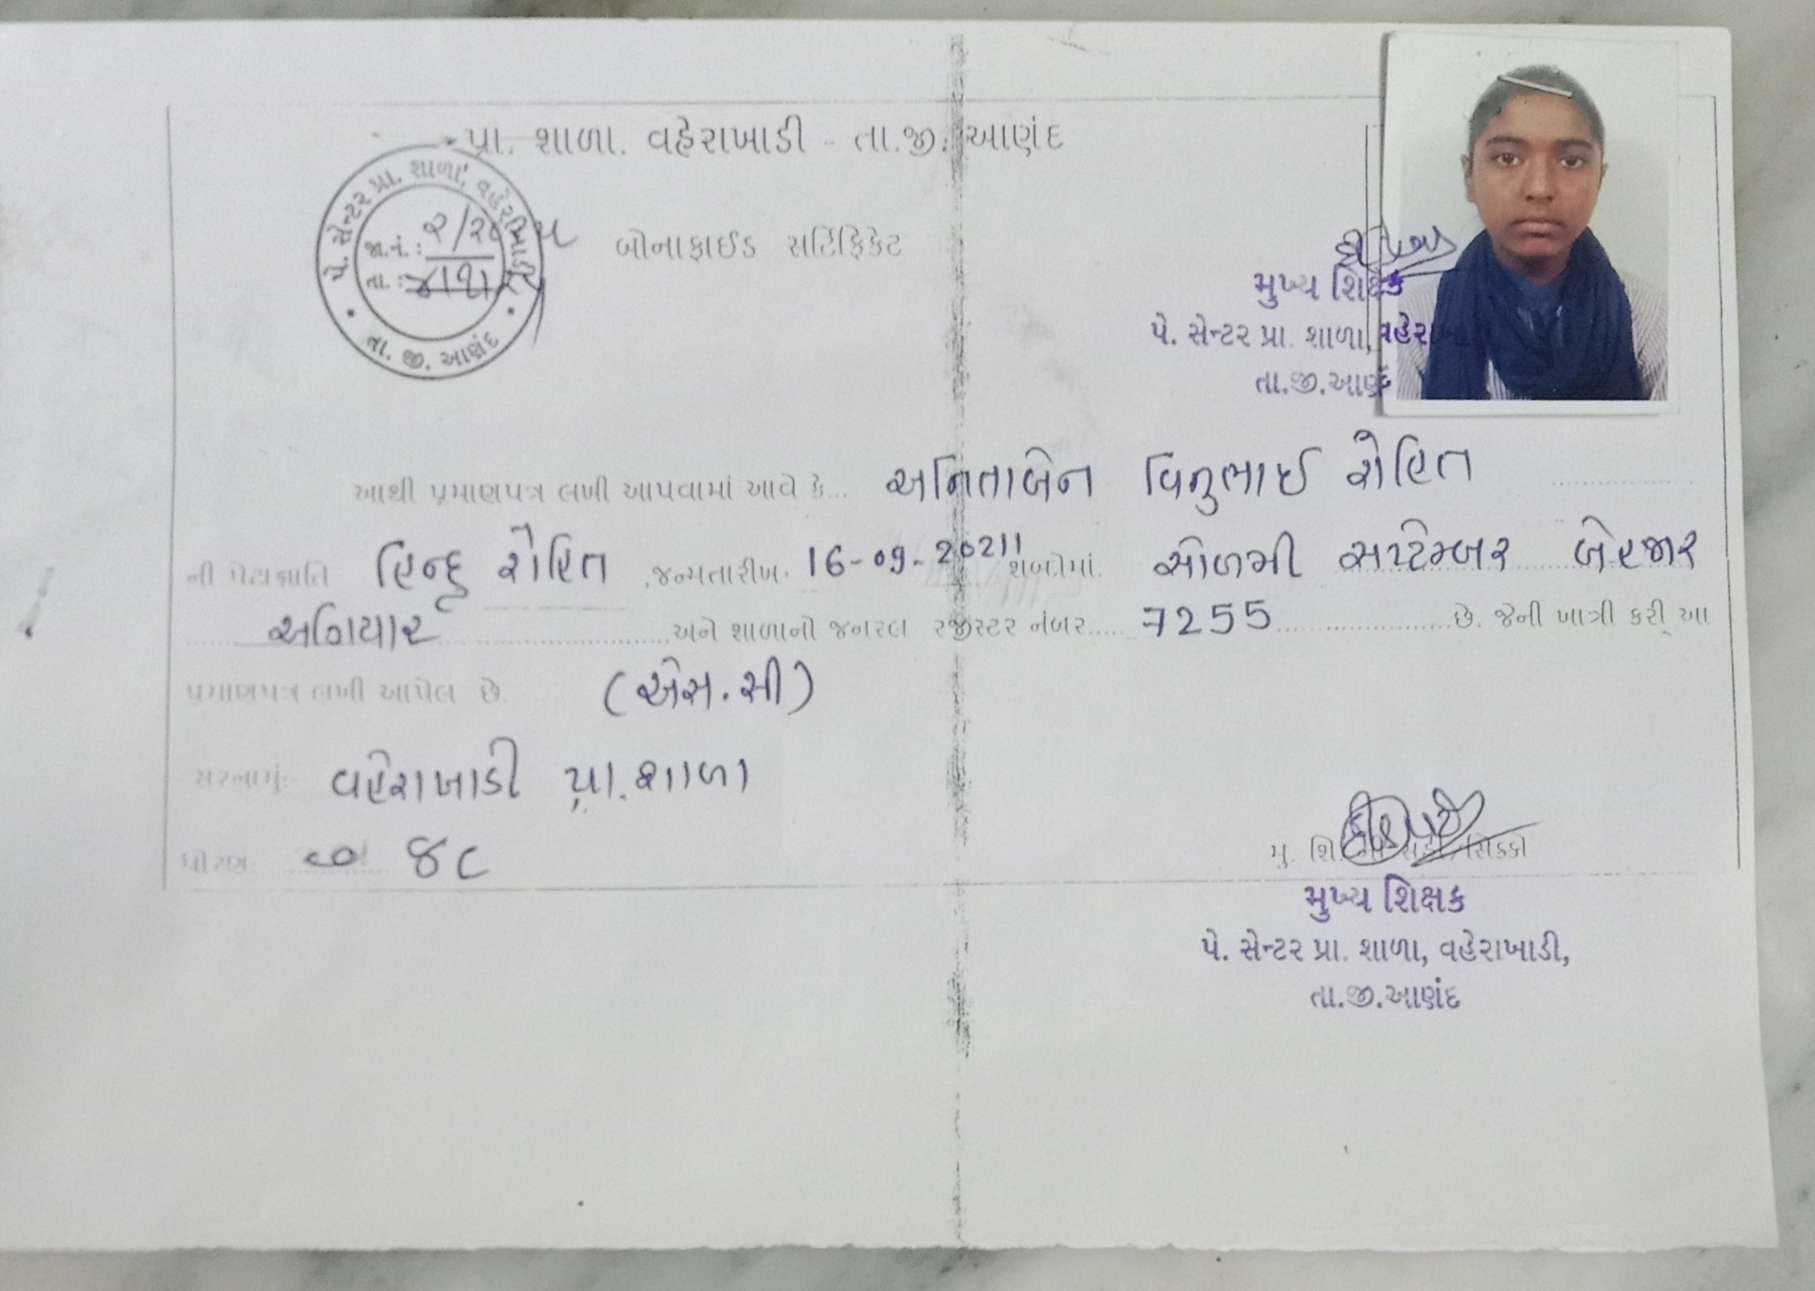 પ્રા. શાળા. વહેરાખાડી - તા.જી. આણંદ
પે. સેન્ટર પ્રા. શાળા, વહેરાખાડી
જા.નં. :
તા. :
તા. જી. આણંદ
બોનાફાઈડ સર્ટિફિકેટ
મુખ્ય શિક્ષક
પે. સેન્ટર પ્રા. શાળા, વહેરા
તા.જી.આણંદ
આથી પ્રમાણપત્ર લખી આપવામાં આવે કે... અનિતાબેન વિનુભાઈ રોહિત
ની પેટાજ્ઞાતિ હિન્દુ રોહિત .જન્મતારીખ. 16-09-20211 શબ્દોમાં. સોળમી સપ્ટેમ્બર બેહજાર
અગિયાર અને શાળાનો જનરલ રજીસ્ટર નંબર..... 7255 છે. જેની ખાત્રી કરી આ
પ્રમાણપત્ર લખી આપેલ છે. (એસ.સી)
સરનામું:- વહેરાખાડી પ્રા.શાળા
ધોરણ: ૪૮
મુ. શિ. સહી/સિક્કો
મુખ્ય શિક્ષક
પે. સેન્ટર પ્રા. શાળા, વહેરાખાડી,
તા.જી.આણંદ